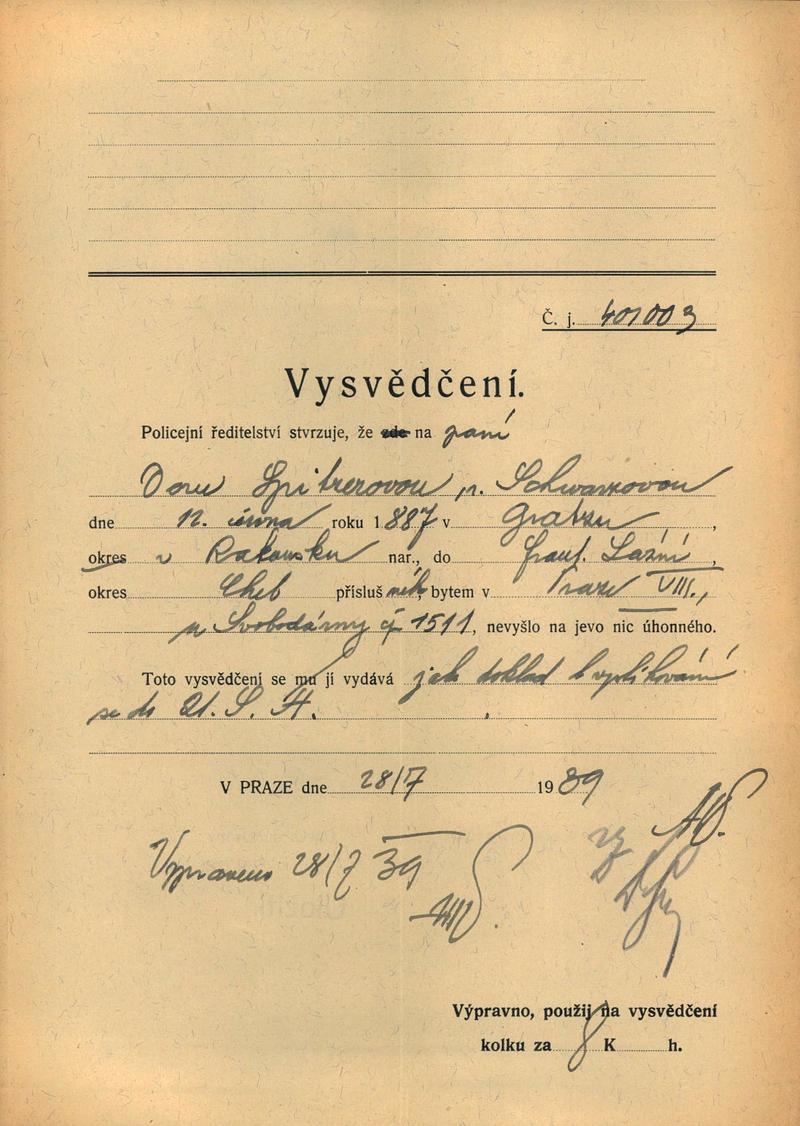 Č. j. 401003
Vysvědčení.
Policejní ředitelství stvrzuje, že zde na paní
Doru Spitzerovou, r. Schwarzovou
dne 12. června roku 1887 v Gratzu,
okres v Rakousku nar., do Frant. Lázní,
okres Cheb přísluš nék, bytem v Praze VIII.,
u Svobodárny čp 1511, nevyšlo na jevo nic úhonného.
Toto vysvědčení se mu jí vydává jak doklad k vystěhování
se do U. S. A.
V PRAZE dne 28/7 1939
Vypraveno 28/7 39
Výpravno, použij na vysvědčení
kolku za 8 K h.